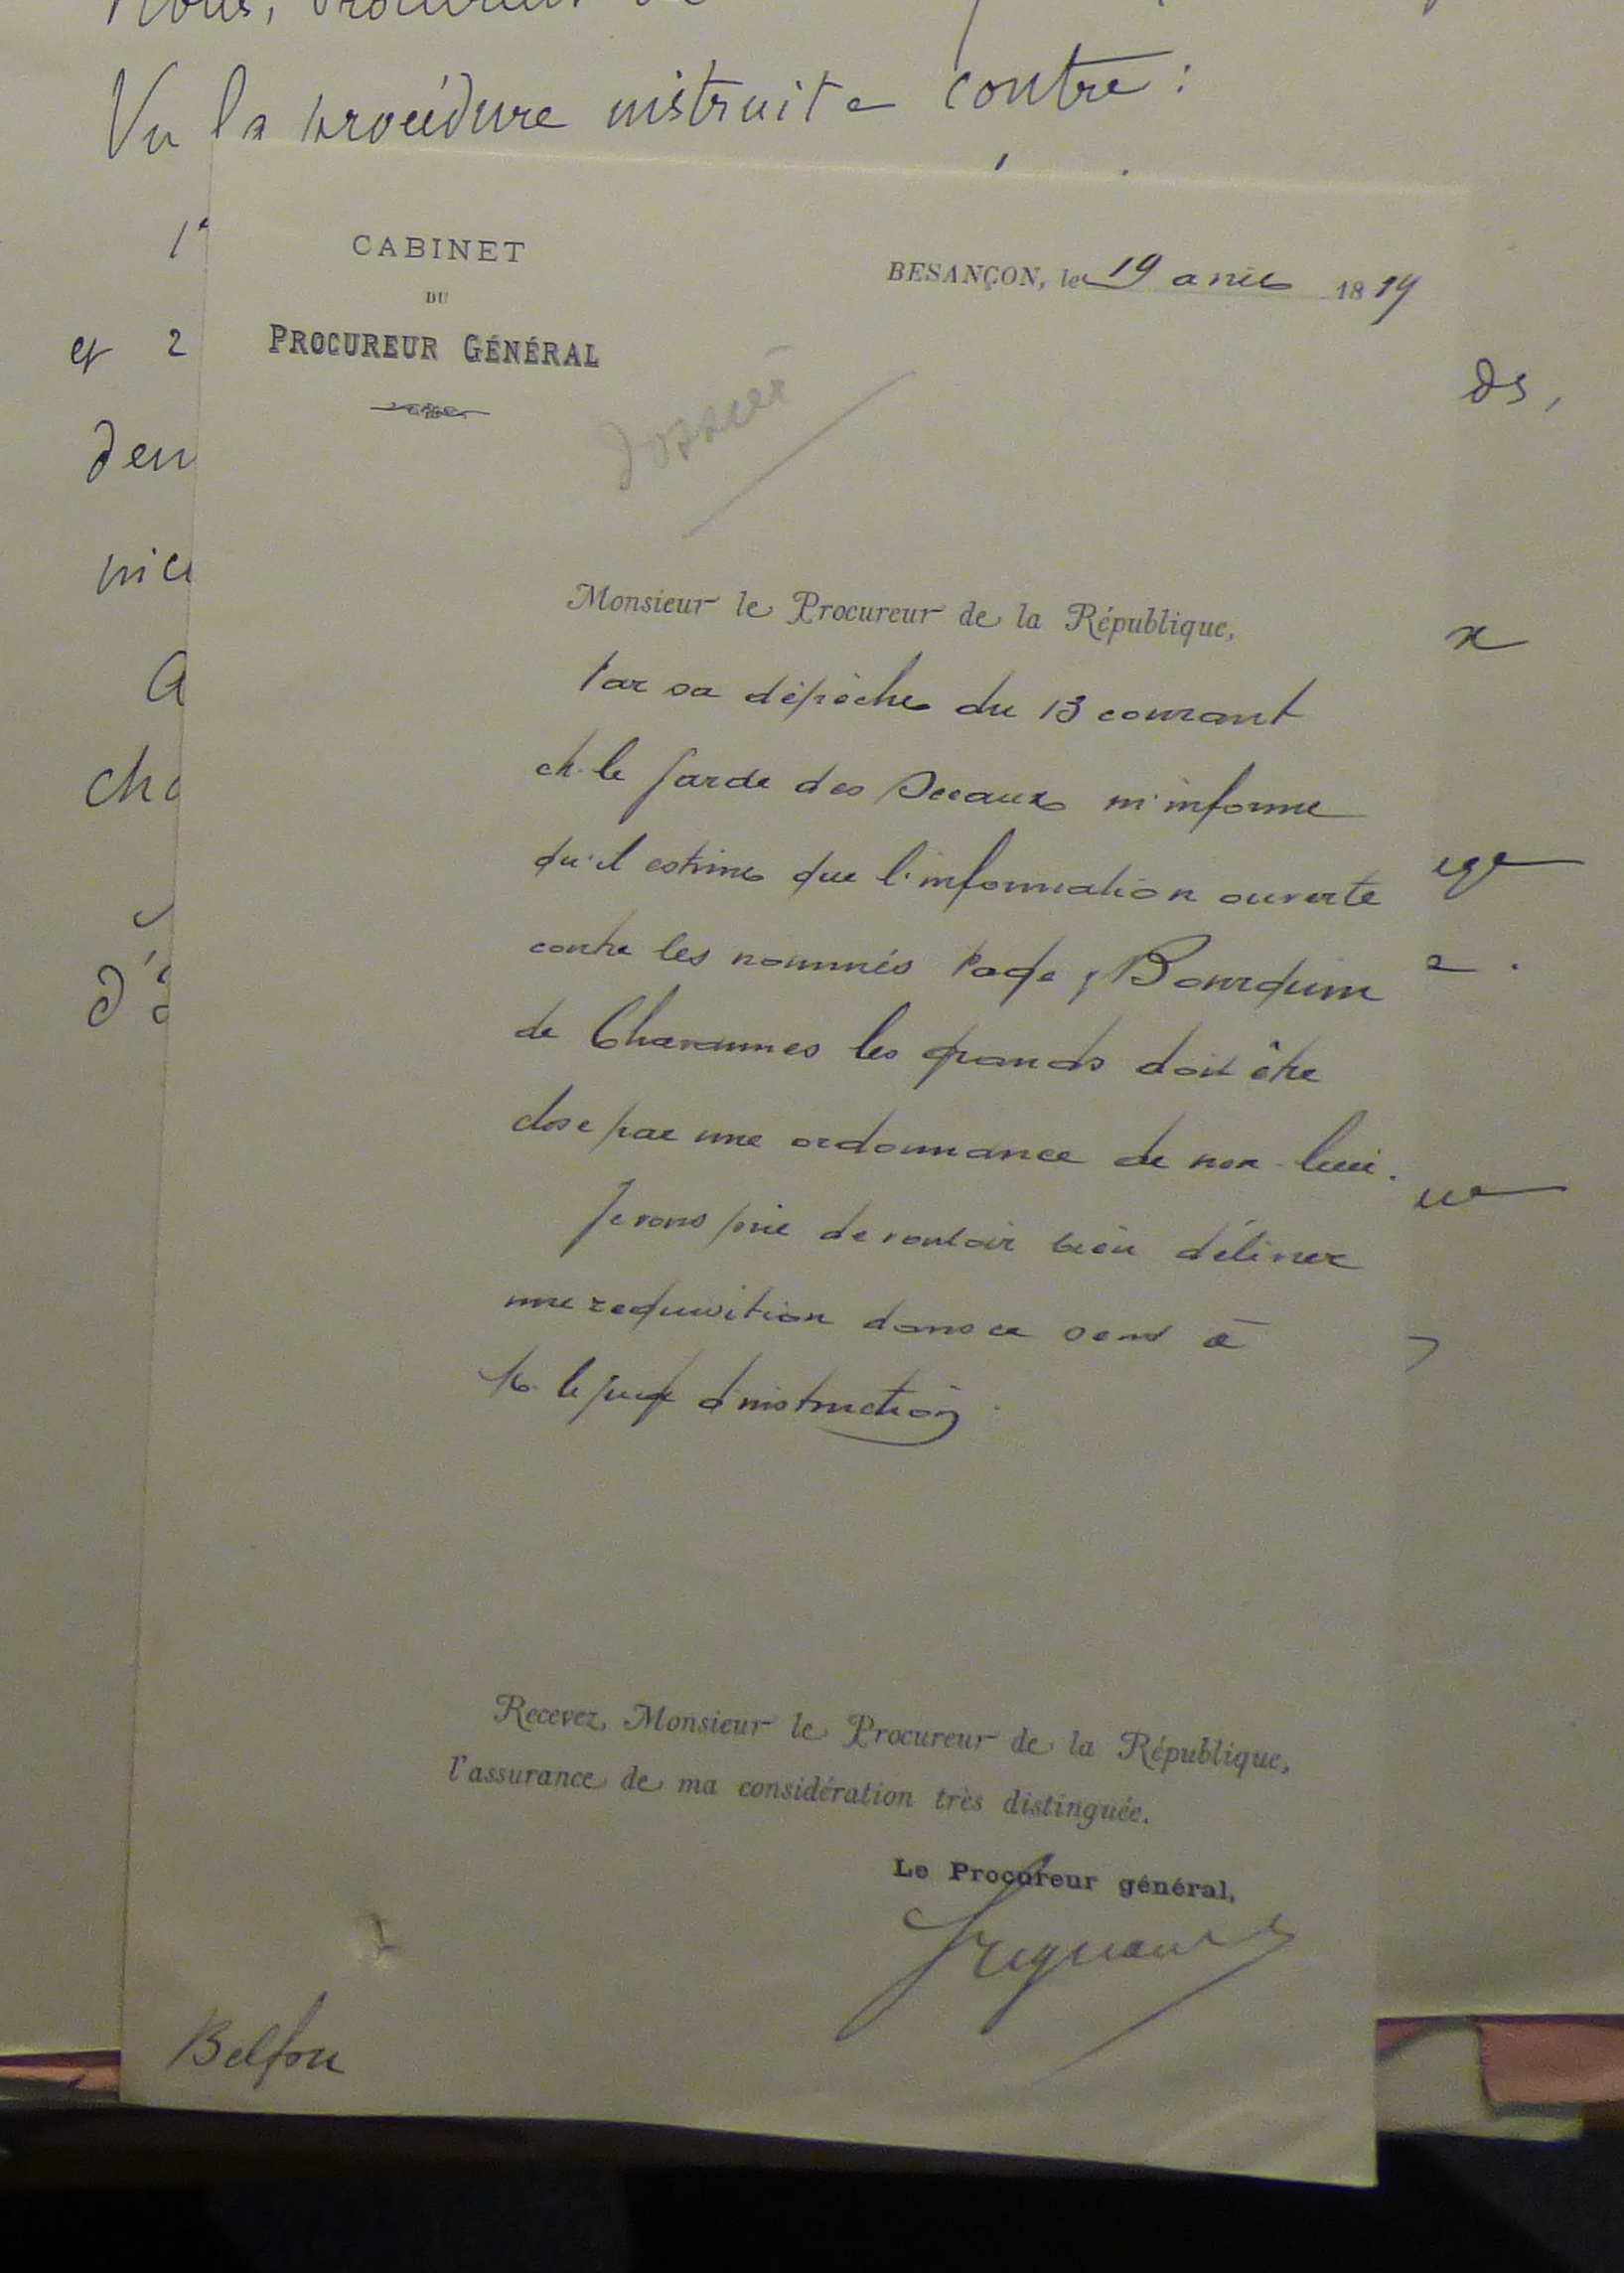 Vu la procédure instruite contre :
CABINET
DU
PROCUREUR GÉNÉRAL
BESANÇON, le 19 avril 18
Dossier
et 2
ds,
Monsieur le Procureur de la République,
Par sa dépêche du 13 courant
M. le Garde des Sceaux m'informe
qu'il estime que l'information ouverte
contre les nommés Page, Bourquin
de Chavannes les grands doit être
close par une ordonnance de non-lieu.
Je vous prie de vouloir bien délivrer
une requisition dans ce sens à
M. le juge d'instruction.
Recevez, Monsieur le Procureur de la République,
l'assurance de ma considération très distinguée.
Le Procureur général,
Belfort